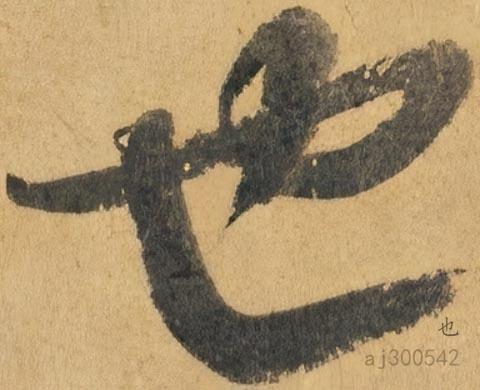 也
也
aj300542